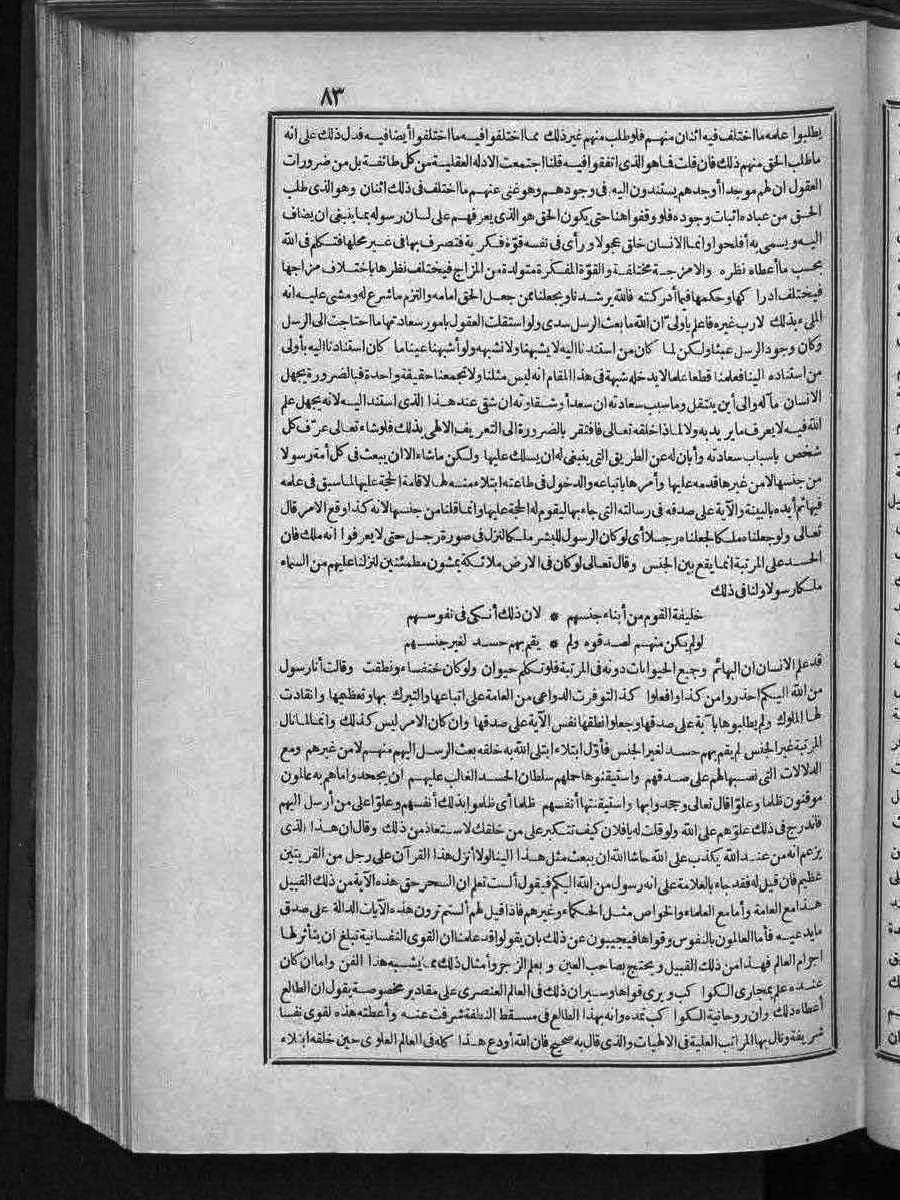 ٨٣
يطلبوا علمه ما اختلف فيه اثنان منهم فلو طلب منهم غير ذلك مما اختلفوا فيه ما اختلفوا أيضا فيه فدل ذلك على انه
ما طلب الحق منهم ذلك فان قلت فما هو الذى اتفقوا فيه قلنا اجتمعت الادلة العقلية من كل طائفة بل من ضرورات
العقول ان لهم موجدا أوجدهم يستندون اليه فى وجودهم وهو غنى عنهم ما اختلف فى ذلك اثنان وهو الذى طلب
الحق من عباده اثبات وجوده فلو وقفوا هنا حتى يكون الحق هو الذى يعرفهم على لسان رسوله بما ينبغى ان يضاف
اليه ويسمى به أفلحوا وانما الانسان خلق عجولا ورأى فى نفسه قوّة فكرية فتصرف بها فى غير محلها فتكلم فى الله
بحسب ما أعطاه نظره والامزجة مختلفة والقوّة المفكرة متولدة من المزاج فيختلف نظرها باختلاف مزاجها
فيختلف ادراكها وحكمها فيما أدركته فالله يرشدنا ويجعلنا ممن جعل الحق امامه والتزم ما شرع له ومشى عليه انه
الملىء بذلك لا رب غيره فاعلم يا ولى ّ ان الله ما بعث الرسل سدى ولو استقلت العقول بامور سعادتها ما احتاجت الى الرسل
وكان وجود الرسل عبثا ولكن لما كان من استندنا اليه لا يشبهنا ولا نشبهه ولو أشبهنا عيننا ما كان استنادنا اليه بأولى
من استناده الينا فعلمنا قطعا علما لا يدخله شبهة فى هذا المقام انه ليس مثلنا ولا تجمعنا حقيقة واحدة فبالضرورة يجهل
الانسان مآله والى أين ينتقل وما سبب سعادته ان سعد أو شقاوته ان شقى عند هذا الذى استند اليه لانه يجهل علم
الله فيه لا يعرف ما يريد به ولا لماذا خلقه تعالى فافتقر بالضرورة الى التعريف الالهى بذلك فلو شاء تعالى عرّف كل
شخص باسباب سعادته وأبان له عن الطريق التى ينبغى له ان يسلك عليها ولكن ما شاء الا ان يبعث فى كل أمة رسولا
من جنسها لا من غيرها قدمه عليها وأمرها باتباعه والدخول فى طاعته ابتلاء منه لها لاقامة الحجة عليها لما سبق فى علمه
فيها ثم أيده بالبينة والآية على صدقه فى رسالته التى جاء بها ليقوم له الحجة عليها وانما قلنا من جنسها لانه كذا وقع الامر قال
تعالى ولو جعلناه ملكا لجعلناه رجلا أى لو كان الرسول للبشر ملكا لنزل فى صورة رجل حتى لا يعرفوا انه ملك فان
الحسد على المرتبة انما يقع بين الجنس وقال تعالى لو كان فى الارض ملائكة يمشون مطمئنين لنزلنا عليهم من السماء
ملكا رسولا ولنا فى ذلك
خليفة القوم من أبناء جنسهم * لان ذلك أنكى فى نفوسهم
لو لم يكن منهم لصدقوه ولم * يقم بهم حسد لغير جنسهم
قد علم الانسان ان البهائم وجميع الحيوانات دونه فى المرتبة فلو تكلم حيوان ولو كان خنفساء ونطقت وقالت أنا رسول
من الله اليكم احذروا من كذا وافعلوا كذا لتوفرت الدواعى من العامة على اتباعها والتبرك بها وتعظيمها وانقادت
لها الملوك ولم يطلبوها بآية على صدقها وجعلوا نطقها نفس الآية على صدقها وان كان الامر ليس كذلك وانما لما نال
المرتبة غير الجنس لم يقم بهم حسد لغير الجنس فأوّل ابتلاء ابتلى الله به خلقه بعث الرسل اليهم منهم لا من غيرهم ومع
الدلالات التى نصبها لهم على صدقهم واستيقنوها حملهم سلطان الحسد الغالب عليهم ان يجحدوا ما هم به عالمون
موقنون ظلما وعلوّا قال تعالى وجحدوا بها واستيقنتها أنفسهم ظلما أى ظلموا بذلك أنفسهم وعلوّا على من أرسل اليهم
فاندرج فى ذلك علوّهم على الله ولو قلت له يا فلان كيف تتكبر على من خلقك لاستعاذ من ذلك وقال ان هذا الذى
يزعم انه من عند الله يكذب على الله حاشا الله ان يبعث مثل هذا الينا لولا أنزل هذا القرآن على رجل من القريتين
عظيم فان قيل له فقد جاء بالعلامة على انه رسول من الله اليكم فيقول ألست تعلم ان السحر حق هذه الآية من ذلك القبيل
هذا مع العامة وأما مع العلماء والخواص مثل الحكماء وغيرهم فاذا قيل لهم ألستم ترون هذه الآيات الدالة على صدق
ما يدعيه فأما العالمون بالنفوس وقواها فيجيبون عن ذلك بان يقولوا قد علمنا ان القوى النفسانية تبلغ ان يتأثر لها
اجرام العالم فهذا من ذلك القبيل ويحتج بصاحب العين وبعلم الزجر وأمثال ذلك مما يشبه هذا الفن واما ان كان
عنده علم بمجارى الكواكب ويرى قواها وسريان ذلك فى العالم العنصرى على مقادير مخصوصة يقول ان الطالع
أعطاه ذلك وان روحانية الكواكب تمده وانه بهذا الطالع فى مسقط النطفة شرفت عنه وأعطته هذه القوى نفسا
شريفة ونال بها المراتب العلية فى الالهيات والذى قال به صحيح فان الله أودع هذا كله فى العالم العلوى حين خلقه ابتلاء